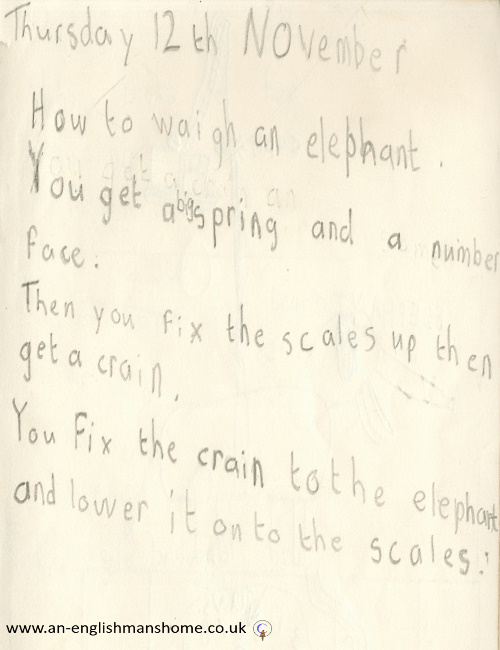 Thursday 12th November
How to waigh an elephant.
You get a big spring and a number
face.
Then you fix the scales up then
get a crain.
You fix the crain to the elephant
and lower it on to the scales.
www.an-englishmanshome.co.uk